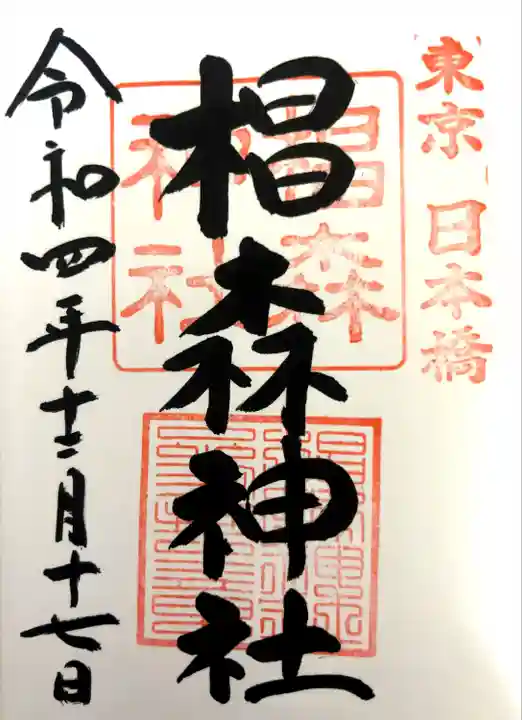 東京 日本橋
椙森神社
椙森
神社
令和四年十二月十七日